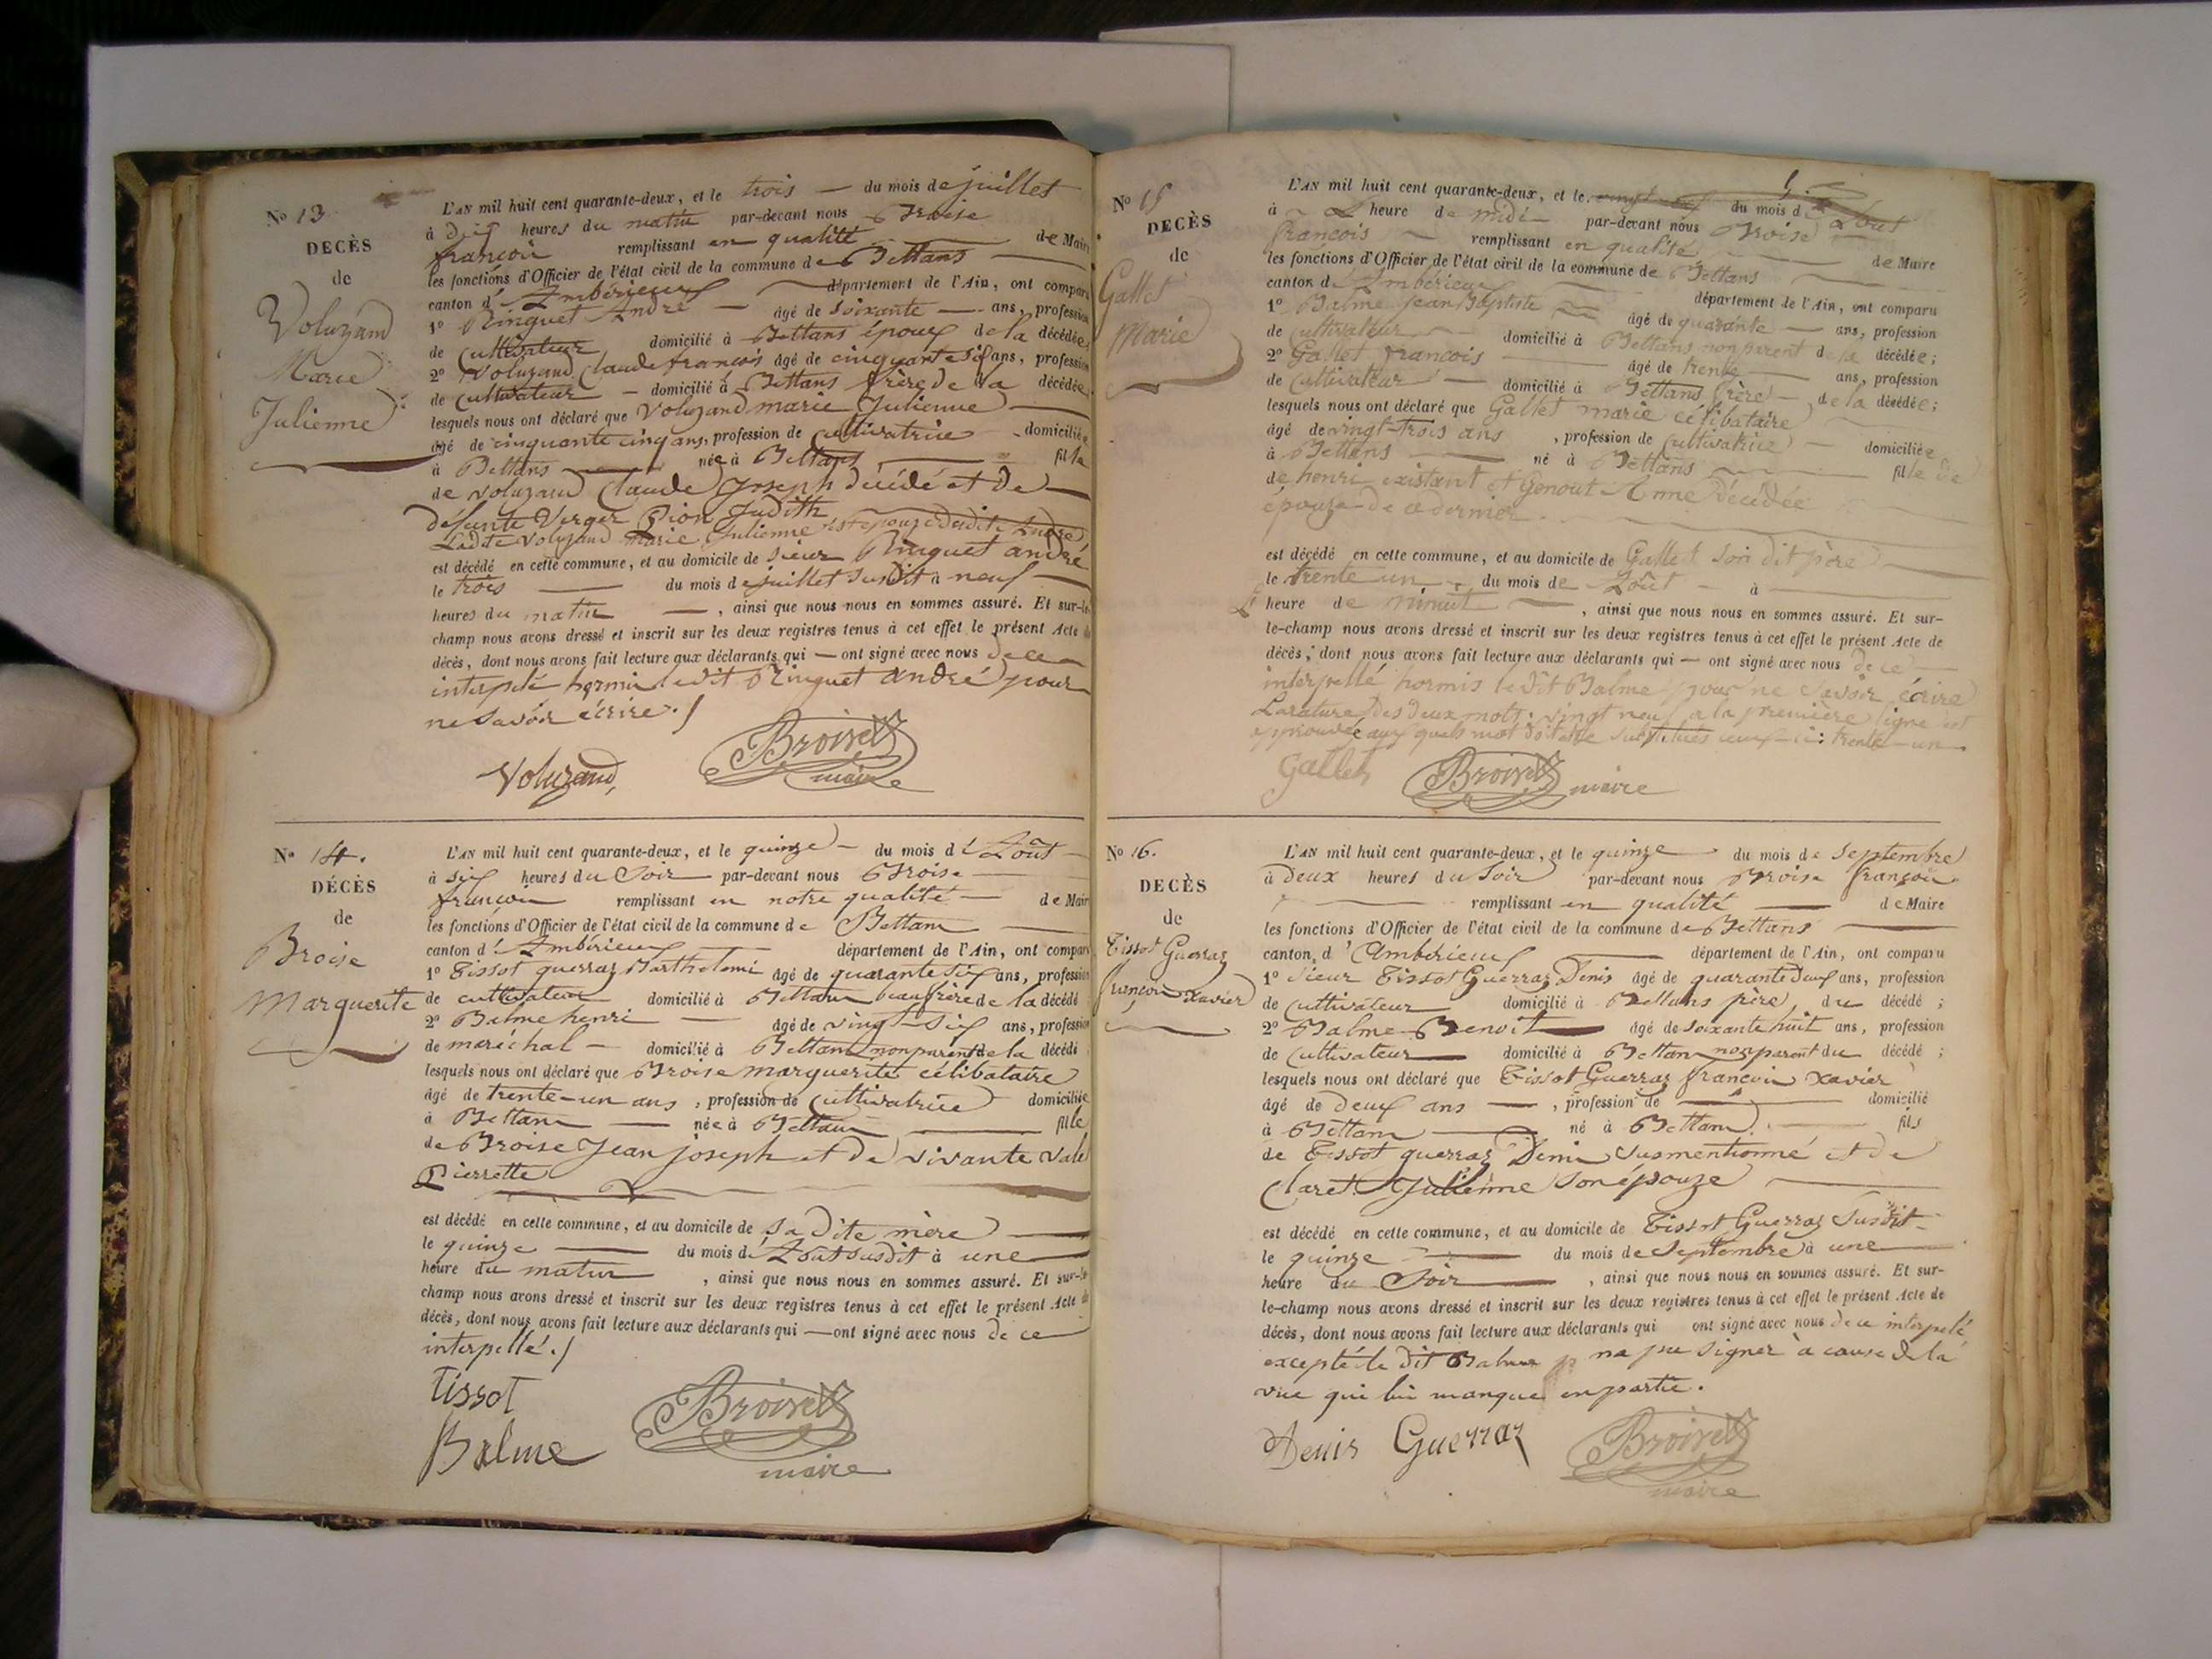 No 13
DECÈS
de
Voluzand
Marie
Julienne
L'AN mil huit cent quarante-deux, et le trois — du mois de juillet
à dix heures du matin par-devant nous Broise
françois remplissant en qualité — de Maire
les fonctions d'Officier de l'état civil de la commune de Bettans —
canton d'Ambérieux — département de l'Ain, ont comparu
1º Ringuet André — âgé de soixante — ans, profession
de Cultivateur domicilié à Bettans époux de la décédée,
2º Voluzand Claude françois âgé de cinquante six ans, profession
de Cultivateur — domicilié à Bettans frère de la décédée
lesquels nous ont déclaré que Voluzand marie Julienne —
âgé de cinquante cinq ans, profession de Cultivatrice — domiciliée
à Bettans — née à Bettans — fille
de voluzand Claude Joseph décédé et de —
défunte Verger Pion Judith
Ladite Voluzand marie Julienne est épouze dudit André
est décédé en cette commune, et au domicile de sieur Ringuet andré
le trois — du mois de juillet susdit à neuf —
heures du matin — , ainsi que nous nous en sommes assuré. Et sur-le-
champ nous avons dressé et inscrit sur les deux registres tenus à cet effet le présent Acte de
décès, dont nous avons fait lecture aux déclarants qui — ont signé avec nous de ce
interpelé hormis ledit Ringuet André pour
ne savoir écrire ./
Voluzand, Broise
maire
No 14.
DÉCÈS
de
Broise
Marguerite
L'AN mil huit cent quarante-deux, et le quinze — du mois d'Août —
à six heures du Soir — par-devant nous Broise —
françois remplissant en notre qualité — de Maire
les fonctions d'Officier de l'état civil de la commune de Bettans —
canton d'Ambérieux — département de l'Ain, ont comparu
1º Tissot guerraz Barthelemi âgé de quarante six ans, profession
de cultivateur domicilié à Bettans beaufrère de la décédé
2º Balme henri — âgé de vingt-six ans, profession
de maréchal — domicilié à Bettans non parent de la décédé
lesquels nous ont déclaré que Broise marguerite célibataire
âgé de trente-un ans , profession de Cultivatrice domiciliée
à Bettans — née à Bettans — fille
de Broise Jean joseph et de vivante Valé
Pierrette
est décédé en cette commune, et au domicile de sa dite mère —
le quinze — du mois d'Août susdit à une —
heure du matin , ainsi que nous nous en sommes assuré. Et sur-le-
champ nous avons dressé et inscrit sur les deux registres tenus à cet effet le présent Acte de
décès, dont nous avons fait lecture aux déclarants qui — ont signé avec nous de ce
interpellé ./
Tissot Broise
Balme maire
No 15
DECÈS
de
Gallet
Marie
L'AN mil huit cent quarante-deux, et le vingt neuf du mois d'Août
à L' heure de midi — par-devant nous Broise
françois — remplissant en qualité — de Maire
les fonctions d'Officier de l'état civil de la commune de Bettans
canton d'Ambérieux — département de l'Ain, ont comparu
1º Balme Jean Baptiste — âgé de quarante — ans, profession
de Cultivateur — domicilié à Bettans non parent de la décédée;
2º Gallet françois — âgé de trente — ans, profession
de Cultivateur — domicilié à Bettans frère — de la décédée;
lesquels nous ont déclaré que Gallet marie célibataire
âgé de vingt-trois ans , profession de Cultivatrice — domiciliée
à Bettans — né à Bettans — fille de
de henri existant et Genout Anne décédée
épouze de ce dernier.
est décédé en cette commune, et au domicile de Gallet son dit père —
le trente un — du mois de Août — à —
L' heure de minuit — , ainsi que nous nous en sommes assuré. Et sur-
le-champ nous avons dressé et inscrit sur les deux registres tenus à cet effet le présent Acte de
décès, dont nous avons fait lecture aux déclarants qui — ont signé avec nous de ce —
interpellé hormis le dit Balme pour ne savoir écrire
La rature des deux mots: vingt neuf à la première ligne est
approuvée aux quels mot doit être substitués ceux-ci: trente-un
Gallet Broise maire
No 16.
DECÈS
de
Tissot Guerraz
françois xavier
L'AN mil huit cent quarante-deux, et le quinze — du mois de Septembre
à deux heures du Soir par-devant nous Broise françois
— remplissant en qualité — de Maire
les fonctions d'Officier de l'état civil de la commune de Bettans —
canton d'Ambérieux — département de l'Ain, ont comparu
1º Sieur Tissot Guerraz Denis âgé de quarante deux ans, profession
de Cultivateur domicilié à Bettans père du décédé ;
2º Balme Benoit — âgé de soixante huit ans, profession
de Cultivateur — domicilié à Bettans non parent du décédé ;
lesquels nous ont déclaré que Tissot Guerraz françois xavier
âgé de deux ans — , profession de — domicilié
à Bettans — né à Bettans — fils
de Tissot guerraz Denis susmentionné et de
Claret Julienne son épouze —
est décédé en cette commune, et au domicile de Tissot Guerraz susdit —
le quinze — du mois de Septembre à une —
heure du Soir — , ainsi que nous nous en sommes assuré. Et sur-
le-champ nous avons dressé et inscrit sur les deux registres tenus à cet effet le présent Acte de
décès, dont nous avons fait lecture aux déclarants qui ont signé avec nous de ce interpelé
excepté le dit Balme p ne pu signer à cause de la
vue qui lui manque en partie.
Denis Guerraz Broise
maire